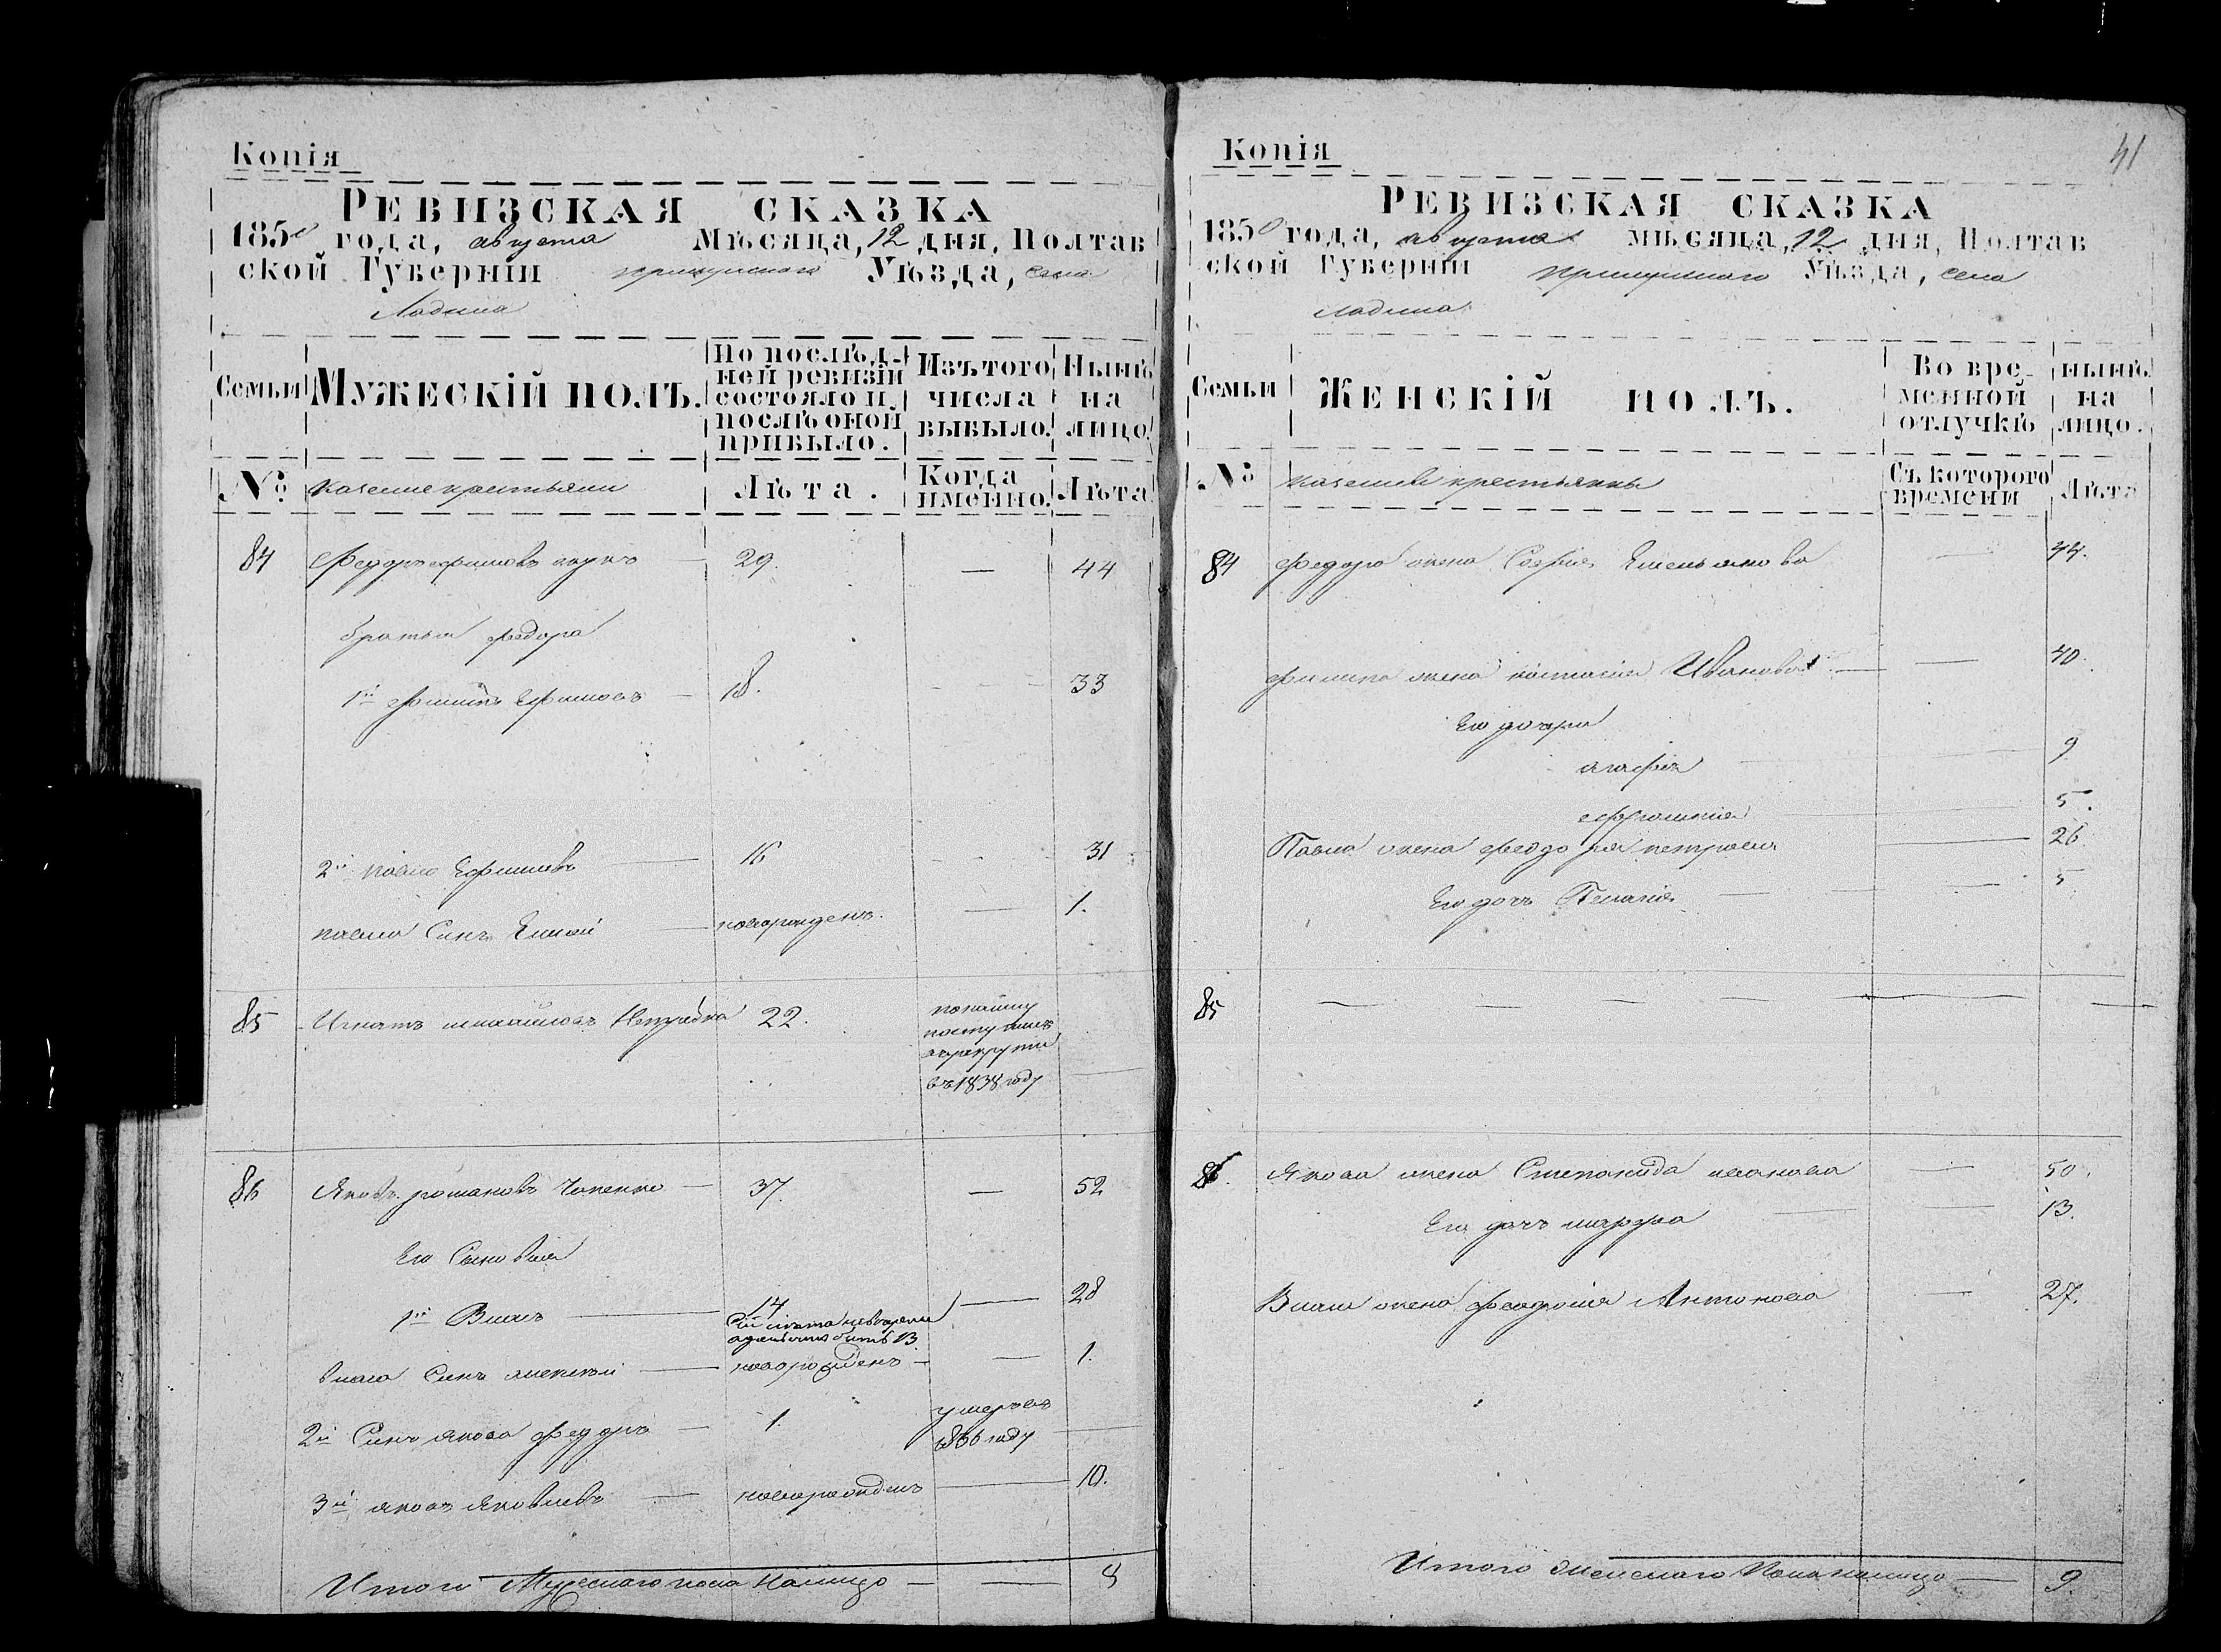 Копія
РЕВИЗСКАЯ СКАЗКА
1850 года, августа Мѣсяца, 12 дня, Полтав
ской Губерніи прилуцкаго Уѣзда, села
Ладина
Семьи
МУЖЕСКІЙ ПОЛЪ.
По послѣд-
ней ревизіи
состояло и
послѣ оной
прибыло.
Изъ того
числа
выбыло.
Нынѣ
на
лицо.
№.
казенные крестьяне
Лѣта.
Когда
именно.
Лѣта
84 Федоръ ефимовъ 29. — 44
братья федора
1й филипъ Ефимовъ — 18. 33
2й павло Ефимовъ — 16 31
павла Синъ Елисей — новорожденъ. — 1.
85 Игнатъ михайловъ 22.
поступилъ
въ рекруты
въ 1838 году
86 Яковъ романовъ — 37. — 52
Его Сыновья
1й Власъ — 14 — 28
новорожденъ — — 1.
власа Синъ алексей
2й Синъ якова федоръ — 1. умеръ въ
1836 году
3й яковъ Яковлевъ — новорожденъ — 10.
Итого Мужескаго пола Налицо — — 8
Копія
41
РЕВИЗСКАЯ СКАЗКА
1850 года, августа мѣсяца, 12 дня, Полтав
ской Губерніи прилуцкаго Уѣзда, села
ладина
Семьи
ЖЕНСКІЙ ПОЛЪ.
Во вре-
менной
отлучкѣ
нынѣ
на
лицо.
№
казенные крестьянки
Съ котораго
времени
Лѣта
84 федора жена София Емельянова — 44.
филипа жена настасия Иванова — — 40.
Его дочери
агафия — 9
ефросиния — 5.
Павла жена феодосия петрова — 26
Его дочь Пелагия — — 5
85 — — — — —
86. Якова жена Степанида иванова — 50.
Его дочь марфа — — 13.
Власа жена феодосия Антонова — 27.
Итого Женскаго Пола налицо — 9.